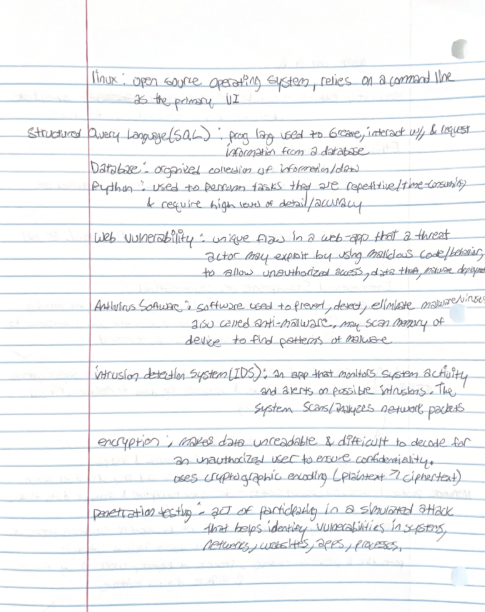 linux: open source operating system, relies on a command line
as the primary UI
Structured Query Language (SQL): prog lang used to create, interact w/, & request
information from a database
Database: organized collection of information/data
Python: used to perform tasks that are repetitive/time-consuming
& require high level of detail/accuracy
Web vulnerability: unique flaw in a web-app that a threat
actor may exploit by using malicious code/behavior,
to allow unauthorized access, data theft, malware deployment
Antivirus Software: software used to prevent, detect, eliminate malware/viruses
also called anti-malware. may scan memory of
device to find patterns of malware
intrusion detection system (IDS): an app that monitors system activity
and alerts on possible intrusions. The
system scans/analyzes network packets
encryption: makes data unreadable & difficult to decode for
an unauthorized user to ensure confidentiality.
uses cryptographic encoding (plaintext → ciphertext)
penetration testing: act of participating in a simulated attack
that helps identify vulnerabilities in systems,
networks, websites, apps, processes.